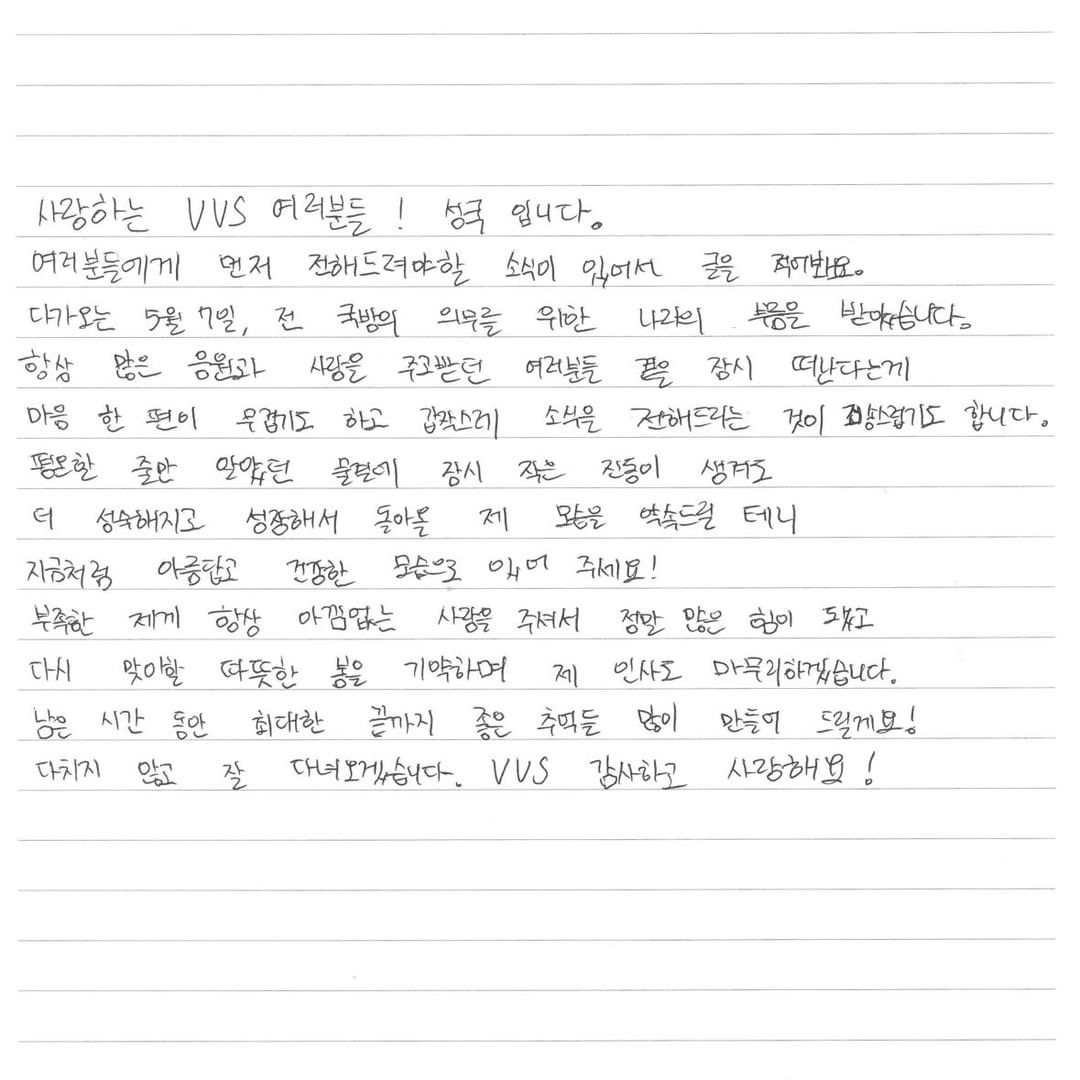 사랑하는 VVS 여러분들! 성국 입니다.
여러분들에게 먼저 전해드려야할 소식이 있어서 글을 적어봐요.
다가오는 5월 7일, 전 국방의 의무를 위한 나라의 부름을 받았습니다.
항상 많은 응원과 사랑을 주고받던 여러분들 곁을 잠시 떠난다는게
마음 한 편이 무겁기도 하고 갑작스레 소식을 전해드리는 것이 죄송스럽기도 합니다.
평온할 줄만 알았던 물결에 잠시 작은 진동이 생겨도
더 성숙해지고 성장해서 돌아올 제 모습을 약속드릴 테니
지금처럼 아름답고 건강한 모습으로 있어 주세요!
부족한 제게 항상 아낌없는 사랑을 주셔서 정말 많은 힘이 됐고
다시 맞이할 따뜻한 봄을 기약하며 제 인사도 마무리하겠습니다.
남은 시간 동안 최대한 끝까지 좋은 추억들 많이 만들어 드릴게요!
다치지 않고 잘 다녀오겠습니다. VVS 감사하고 사랑해요!